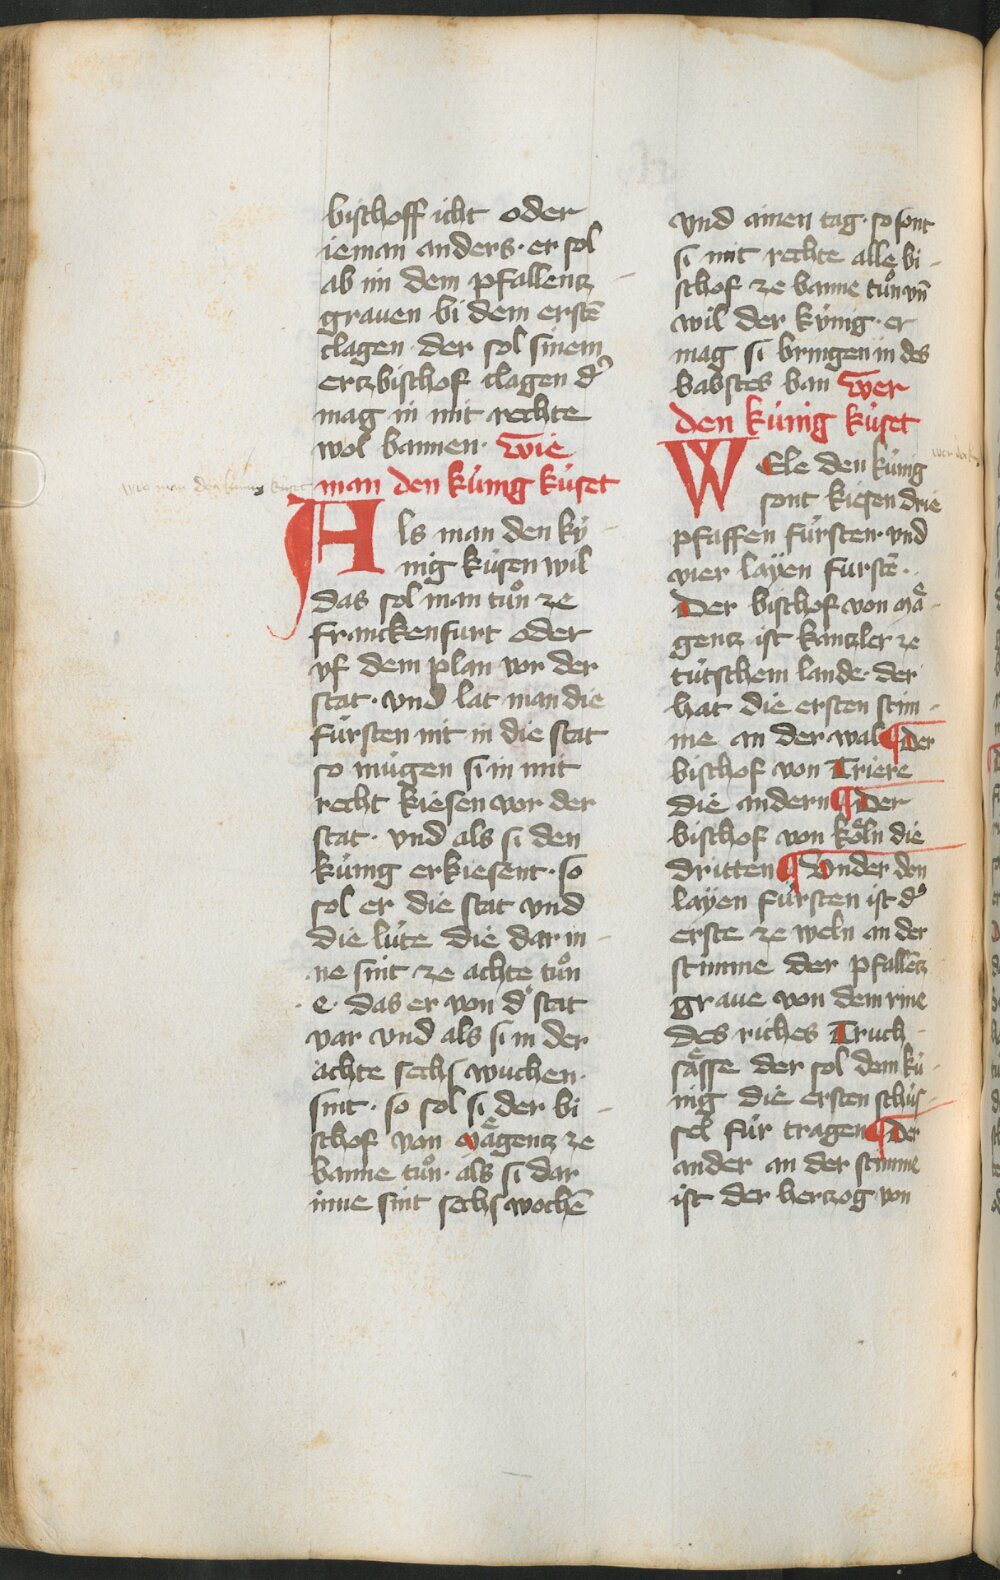 bischoff icht oder
ieman anders · er sol
ab im dem pfallentz
grauen bi dem erstē
clagen · der sol sinem
ertzbischof clagen d᾽
mag in mit rechte
wol bannen · wie
man den kúnig kúset
Als man den kú
nig kúsen wil
das sol man tuͦn ze
franckenfurt oder
vf dem plan vor der
stat · vnd lat man die
fúrsten nit in die stat
so múgen si in mit
recht kiesen vor der
stat · vnd als si den
kúnig erkiesent · so
sol er die stat vnd
die lúte die dar in
ne sint ze achte tuͦn
e · das er von d᾽ stat
var vnd als si in der
achte sechs wuchen
sint · so sol si der bi
schof von maͤgentz ze
banne tuͦn · als si dar
inne sint sechs wochē
wie man den kúnig kúset
vnd ainen tag · so sont
si mit rechte alle bi
schof ze banne tuͦn vn̄
wil der kúnig · er
mag si bringen in des
babstes ban wer
den kúnig kúset
WEle den kúnig
sont kiesen drie
pfaffen fúrsten · vnd
vier layen furstē ·
Der bischof von maͤ
gentz ist kantzler ze
tútschem lande · der
hat die ersten stim
me an der wal ¶ Der
bischof von Triere
die andern ¶ Der
bischof von koͤln die
dritten ¶ Vnder den
layen fúrsten ist d᾽
erste ze weln an der
stimme der pfallētz
graue von dem rine
des riches Truch
saͤsse der sol dem kú
nig die ersten schús
sel fúr tragen ¶ Der
ander an der stimme
ist der hertzog von